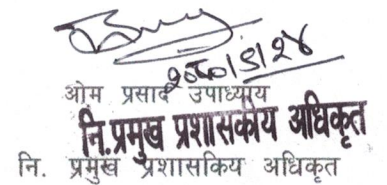 २०८०।९।२४
ओम प्रसाद उपाध्याय
नि.प्रमुख प्रशासकीय अधिकृत
नि. प्रमुख प्रशासकिय अधिकृत